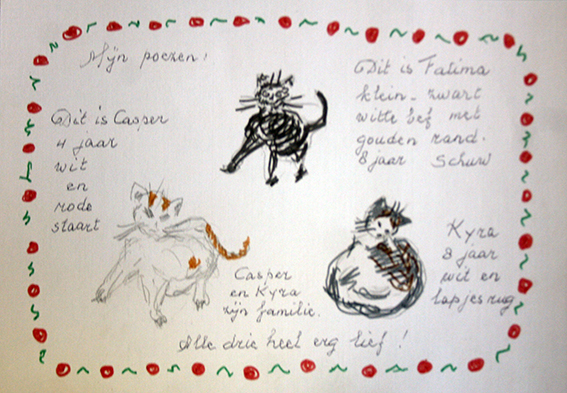 Mijn poezen!
Dit is Casper
4 jaar
wit
en
rode
staart
Dit is Fatima
klein - zwart
witte bef met
gouden rand.
8 jaar schuw
Casper
en Kyra
zijn familie.
Kyra
8 jaar
wit en
lapjesrug
Alle drie heel erg lief!